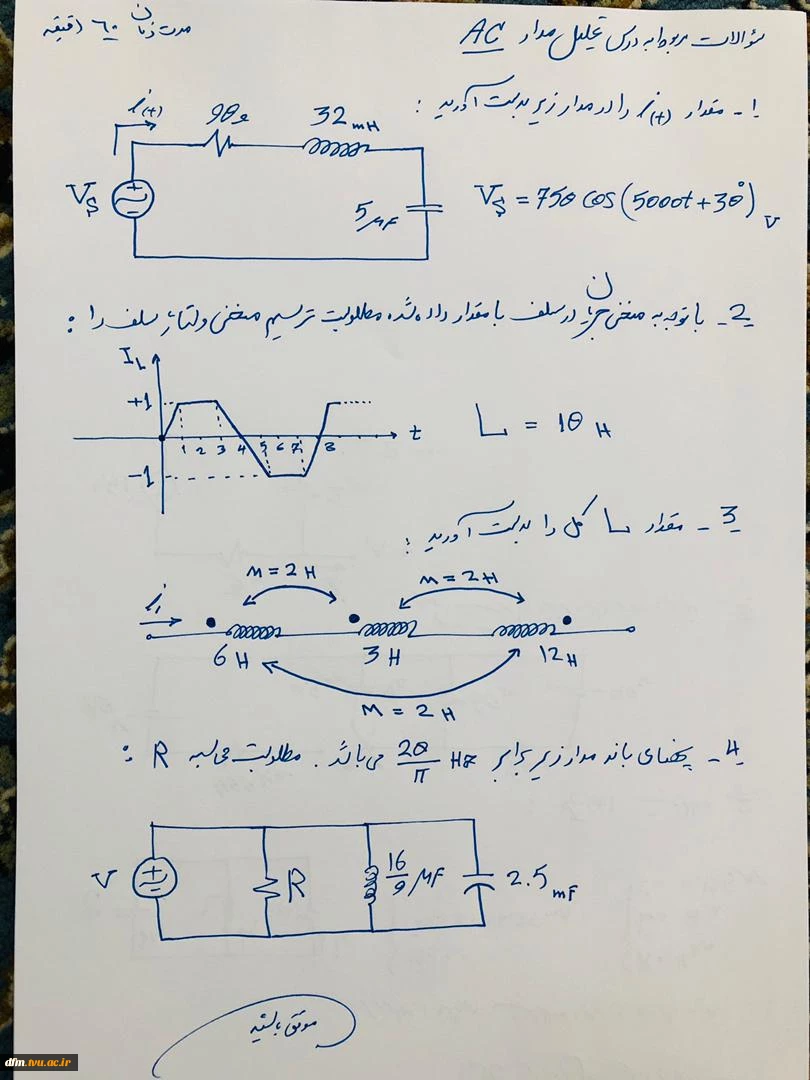 سؤالات مربوط به درس تحلیل مدار AC
مدت زمان 60 دقیقه
1- مقدار i(t) را در مدار زیر بدست آورید :
i(t)
90Ω
32mH
Vs
5μF
Vs = 750 cos(5000t+30°) V
2- با توجه به منحنی جریان در سلف با مقدار داده شده مطلوبست ترسیم منحنی ولتاژ سلف را :
IL
+1
-1
1 2 3 4 5 6 7 8
t
L = 10 H
3- مقدار L کل را بدست آورید :
M = 2 H
M = 2 H
i1
6 H
3 H
12 H
M = 2 H
4- پهنای باند مدار زیر برابر 20/π Hz می باشد. مطلوبست محاسبه R :
V
R
16/9 μF
2.5 mF
موفق باشید
dfm.tvu.ac.ir